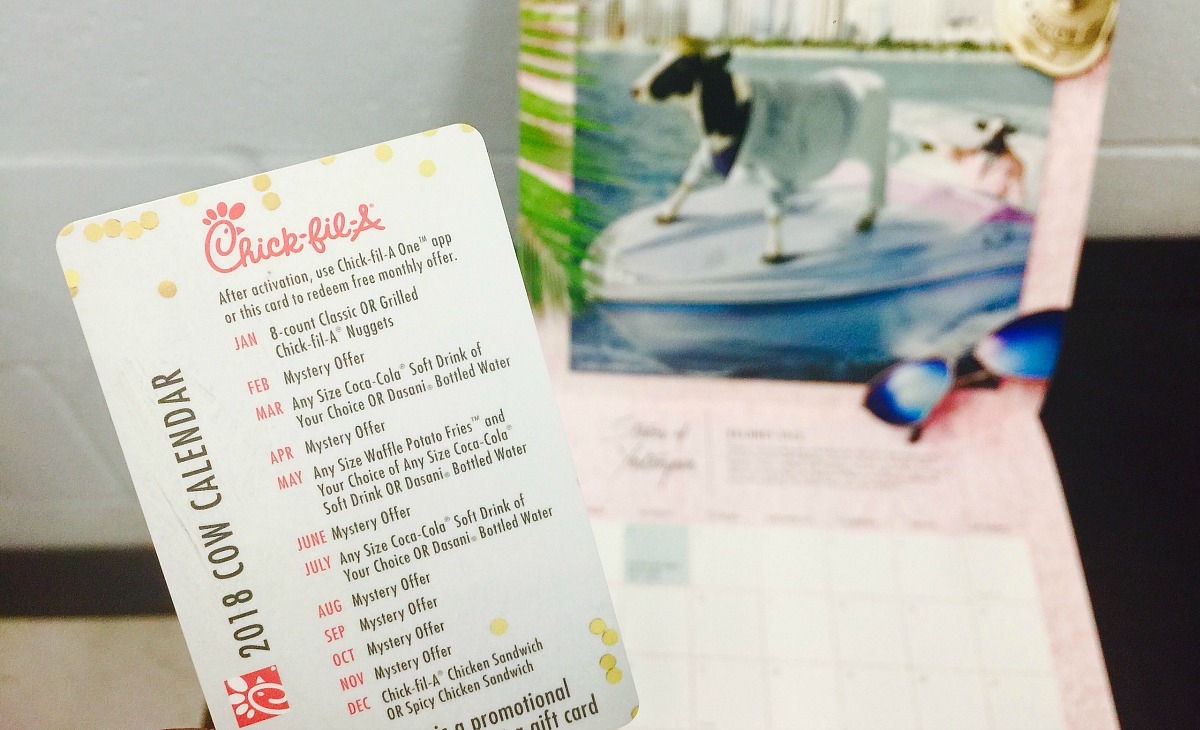 Chick-fil-A®
After activation, use Chick-fil-A One™ app
or this card to redeem free monthly offer.
JAN 8-count Classic OR Grilled
Chick-fil-A® Nuggets
FEB Mystery Offer
MAR Any Size Coca-Cola® Soft Drink of
Your Choice OR Dasani® Bottled Water
APR Mystery Offer
MAY Any Size Waffle Potato Fries™ and
Your Choice of Any Size Coca-Cola®
Soft Drink OR Dasani® Bottled Water
JUNE Mystery Offer
JULY Any Size Coca-Cola® Soft Drink of
Your Choice OR Dasani® Bottled Water
AUG Mystery Offer
SEP Mystery Offer
OCT Mystery Offer
NOV Mystery Offer
DEC Chick-fil-A® Chicken Sandwich
OR Spicy Chicken Sandwich
a promotional
gift card
2018 COW CALENDAR